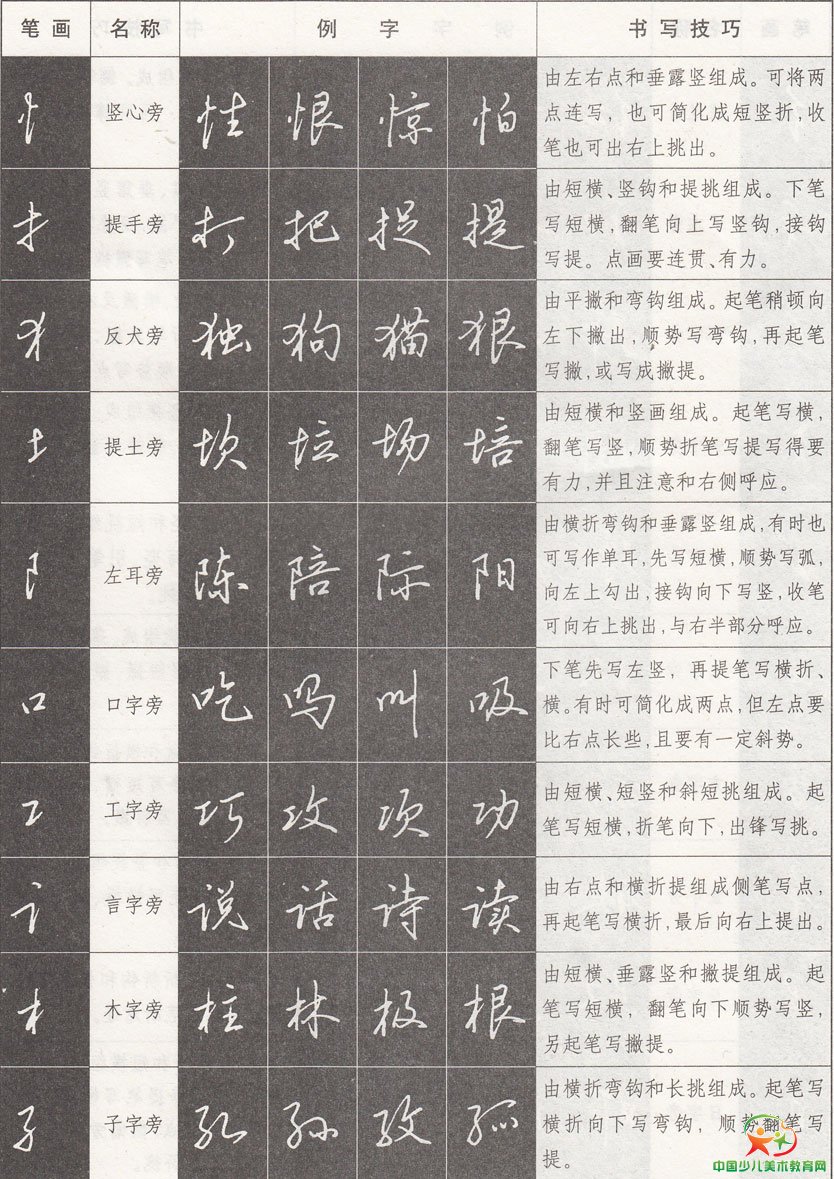 笔画 名称 例字 书写技巧
忄 竖心旁 性 恨 惊 怕
由左右点和垂露竖组成。可将两
点连写，也可简化成短竖折，收
笔也可出右上挑出。
扌 提手旁 打 把 捉 提
由短横、竖钩和提挑组成。下笔
写短横，翻笔向上写竖钩，接钩
写提。点画要连贯、有力。
犭 反犬旁 独 狗 猫 狠
由平撇和弯钩组成。起笔稍顿向
左下撇出，顺势写弯钩，再起笔
写撇，或写成撇提。
土 提土旁 坎 垃 场 培
由短横和竖画组成。起笔写横，
翻笔写竖，顺势折笔写提写得要
有力，并且注意和右侧呼应。
阝 左耳旁 陈 陪 际 阳
由横折弯钩和垂露竖组成，有时也
可写作单耳，先写短横，顺势写弧，
向左上勾出，接钩向下写竖，收笔
可向右上挑出，与右半部分呼应。
口 口字旁 吃 吗 叫 吸
下笔先写左竖，再提笔写横折、
横。有时可简化成两点，但左点要
比右点长些，且要有一定斜势。
工 工字旁 巧 攻 项 功
由短横、短竖和斜短挑组成。起
笔写短横，折笔向下，出锋写挑。
讠 言字旁 说 话 诗 读
由右点和横折提组成侧笔写点，
再起笔写横折，最后向右上提出。
木 木字旁 柱 林 极 根
由短横、垂露竖和撇提组成。起
笔写短横，翻笔向下顺势写竖，
另起笔写撇提。
子 子字旁 孔 孙 孜 孤
由横折弯钩和长挑组成。起笔写
横折向下写弯钩，顺势翻笔写
提。
中国少儿美术教育网